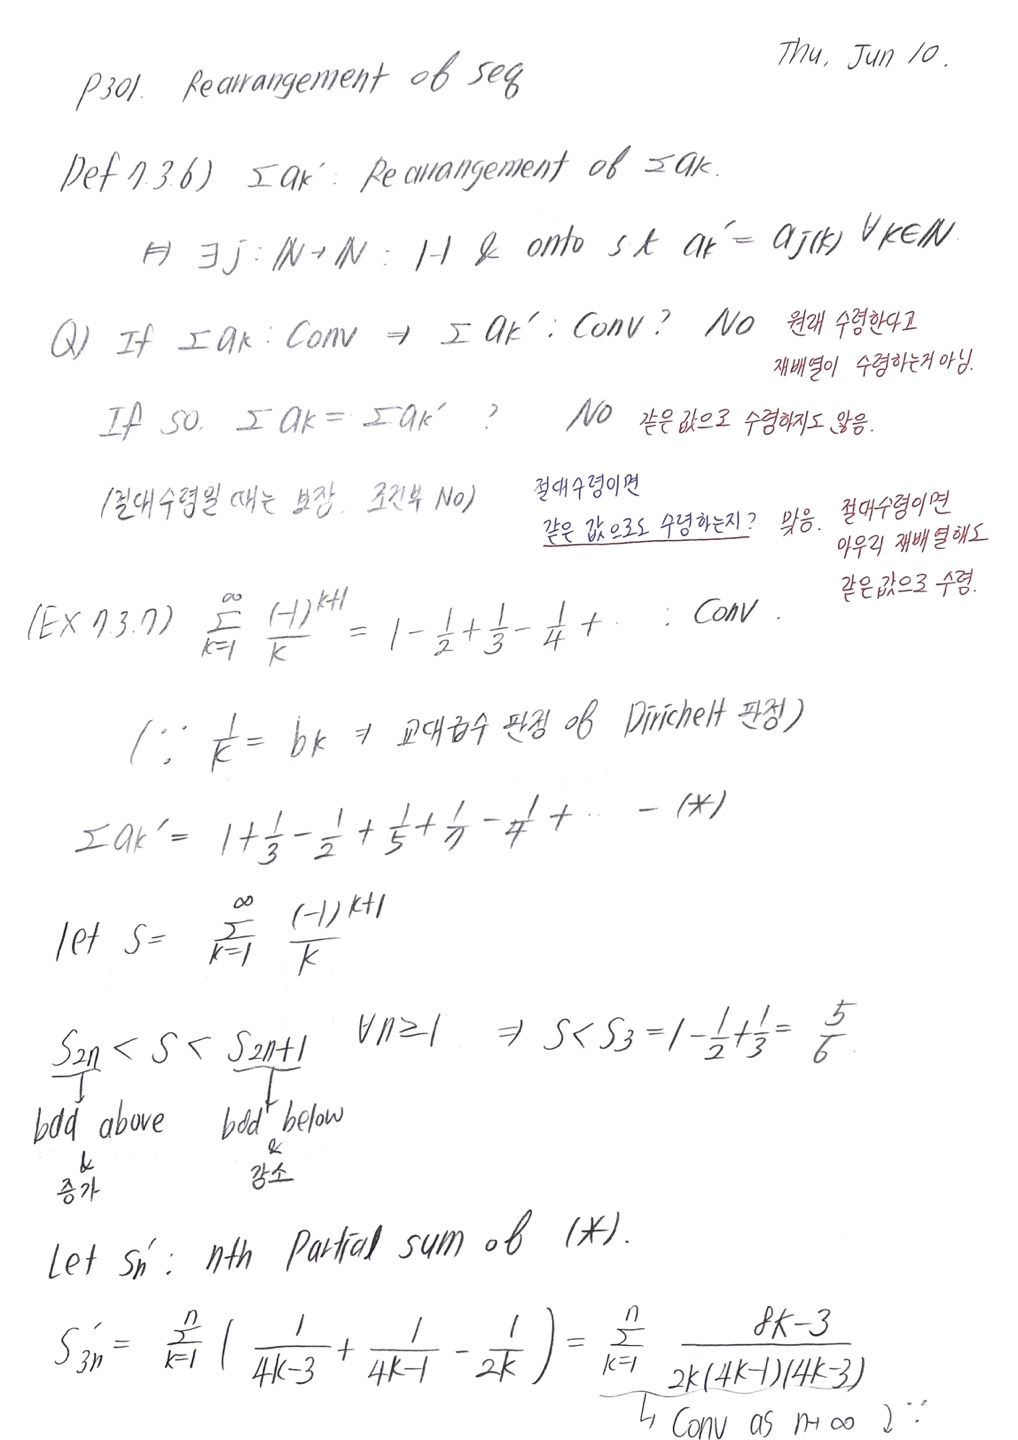 Thu, Jun 10.
P301. Rearrangement of seq
Def 7.3.6) Σak′ : Rearrangement of Σak.
⇔ ∃j : ℕ→ℕ : 1-1 & onto s.t ak′ = aj(k) ∀k∈ℕ
Q) If Σak : Conv ⇒ Σak′ : Conv? No 원래 수렴한다고
재배열이 수렴하는거 아님.
If so. Σak = Σak′ ? No 같은 값으로 수렴하지도 않음.
(절대수렴일 때는 보장. 조건부 No)
절대수렴이면
같은 값으로도 수렴하는지? 맞음. 절대수렴이면
아무리 재배열해도
같은값으로 수렴.
(EX 7.3.7) ∞Σk=1 (-1)^{k+1}/k = 1 - 1/2 + 1/3 - 1/4 + ... : Conv.
(∵ 1/k = bk ⇒ 교대급수 판정 of Dirichelt 판정)
Σak′ = 1 + 1/3 - 1/2 + 1/5 + 1/7 - 1/4 + ... - (*)
let S = ∞Σk=1 (-1)^{k+1}/k
S2n < S < S2n+1 ∀n≥1 ⇒ S < S3 = 1 - 1/2 + 1/3 = 5/6
bdd above bdd below
& &
증가 감소
Let Sn′ : nth Partial sum of (*).
S′3n = nΣk=1 ( 1/(4k-3) + 1/(4k-1) - 1/2k ) = nΣk=1 (8k-3)/(2k(4k-1)(4k-3))
↳ Conv as n→∞ ⤵ ∵